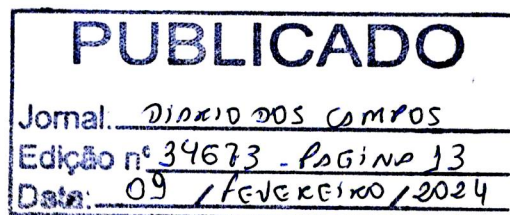 PUBLICADO
Jornal: DIARIO DOS CAMPOS
Edição nº 34673 - PAGINA 13
Data: 09 / FEVEREIRO / 2024